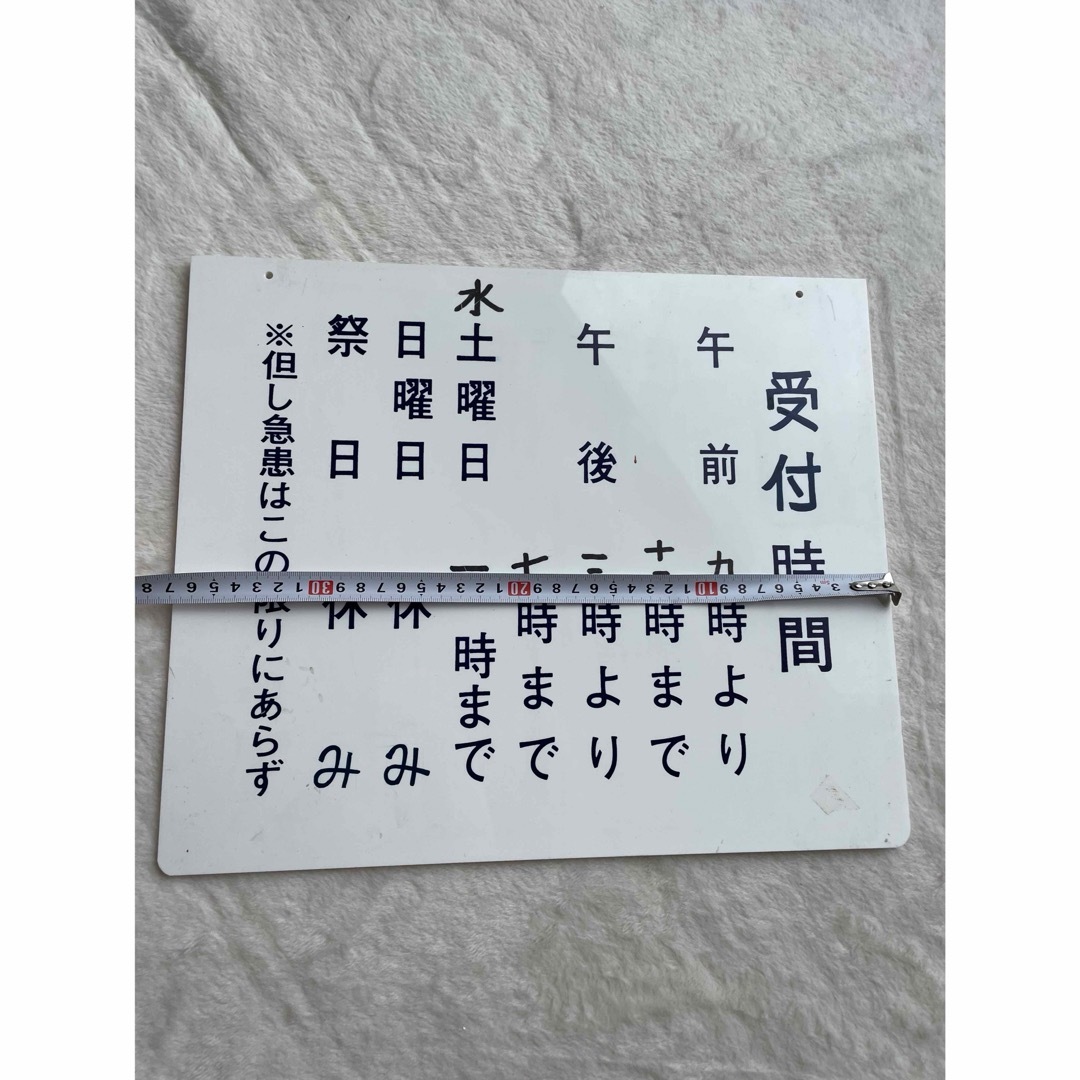 受付時間
午前 九時より
十 時まで
午後 時より
七時まで
水土曜日 一時まで
日曜日 休み
祭日 休み
※但し急患はこの限りにあらず
3 4 5 6 7 8 9 10 1 2 3 4 5 6 7 8 9 20 1 2 3 4 5 6 7 8 9 30 1 2 3 4 5 6 7 8